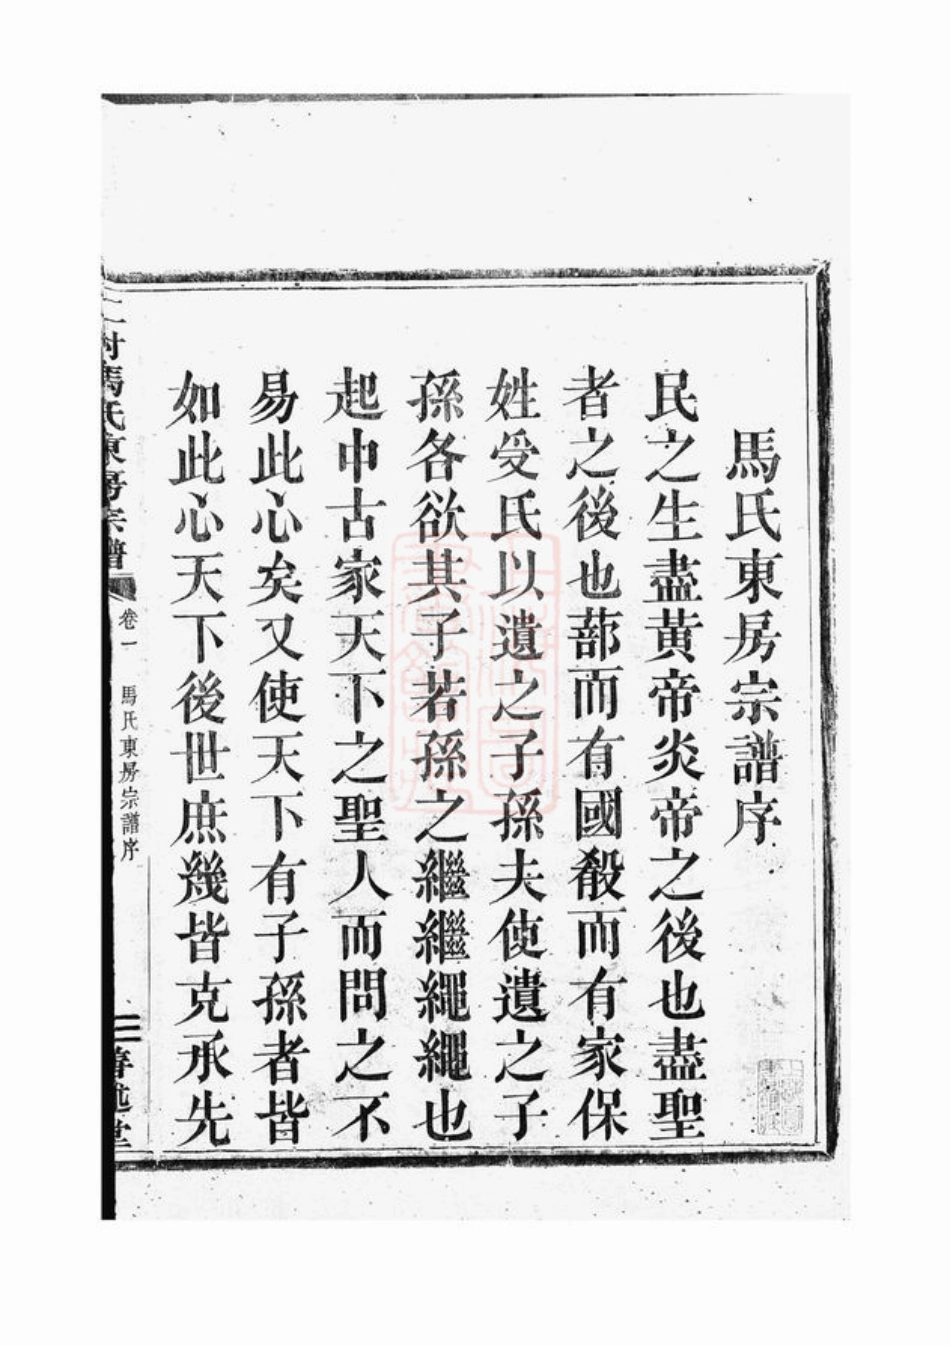 馬氏東房宗譜序
民之生盡黃帝炎帝之後也盡聖
者之後也蔀而有國殽而有家保
姓受氏以遺之子孫夫使遺之子
孫各欲其子若孫之繼繼繩繩也
起中古家天下之聖人而問之不
易此心矣又使天下有子孫者皆
如此心天下後世庶幾皆克承先
馬氏東房宗譜
卷一
馬氏東房宗譜序
三